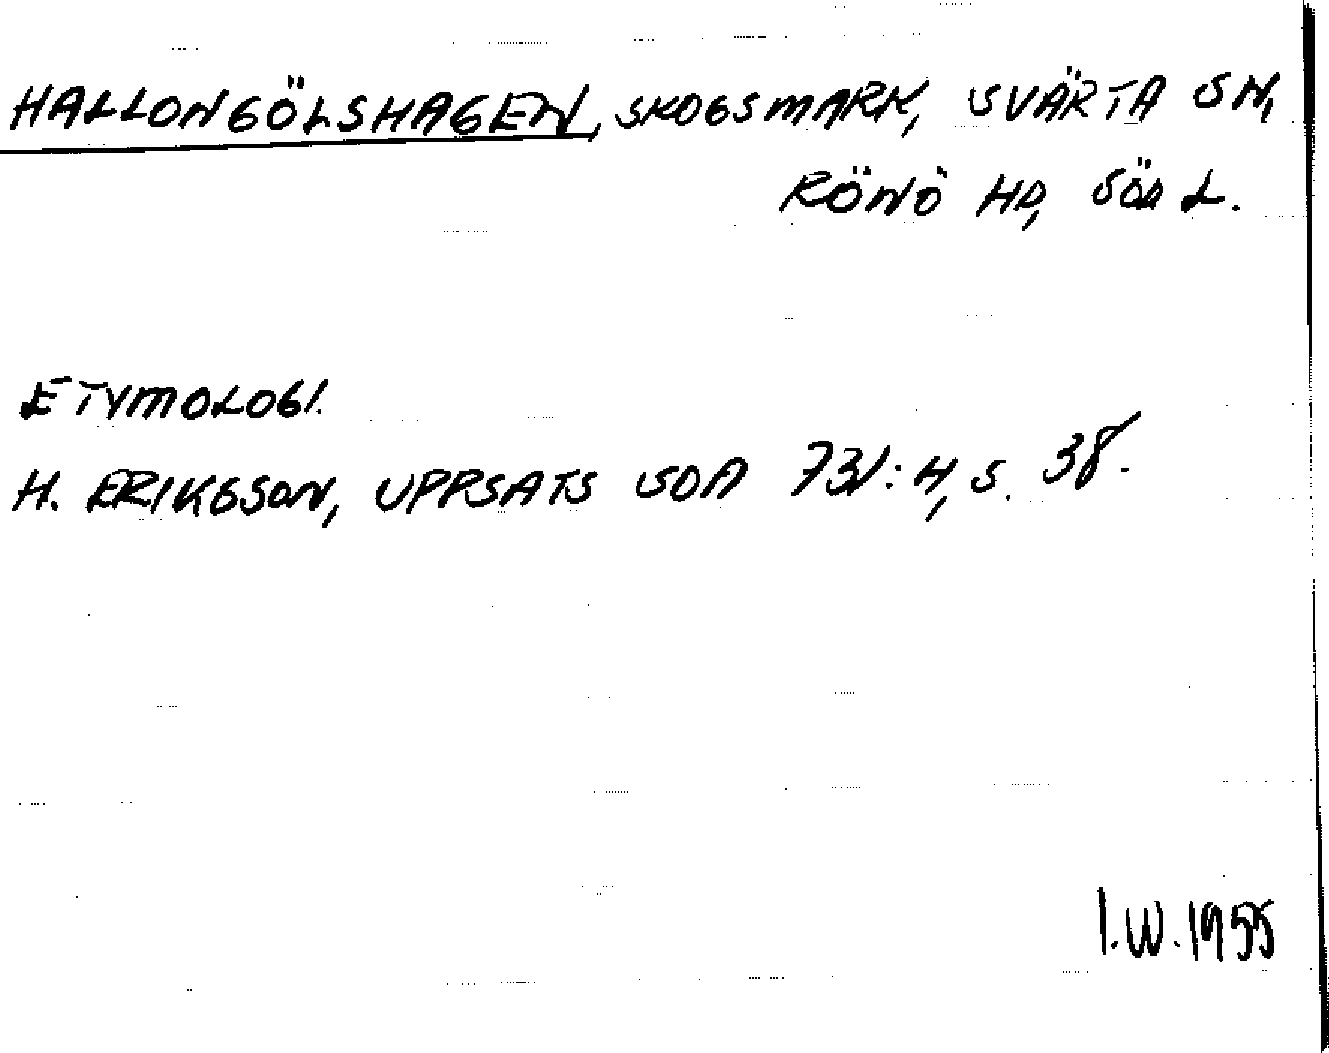 HALLONGÖLSHAGEN, SKOGSMARK, SVÄRTA SN,
RÖNÖ HD, SÖD L.
ETYMOLOGI.
H. ERIKSSON, UPPSATS SOA 731:4, S. 38.
I.W. 1955